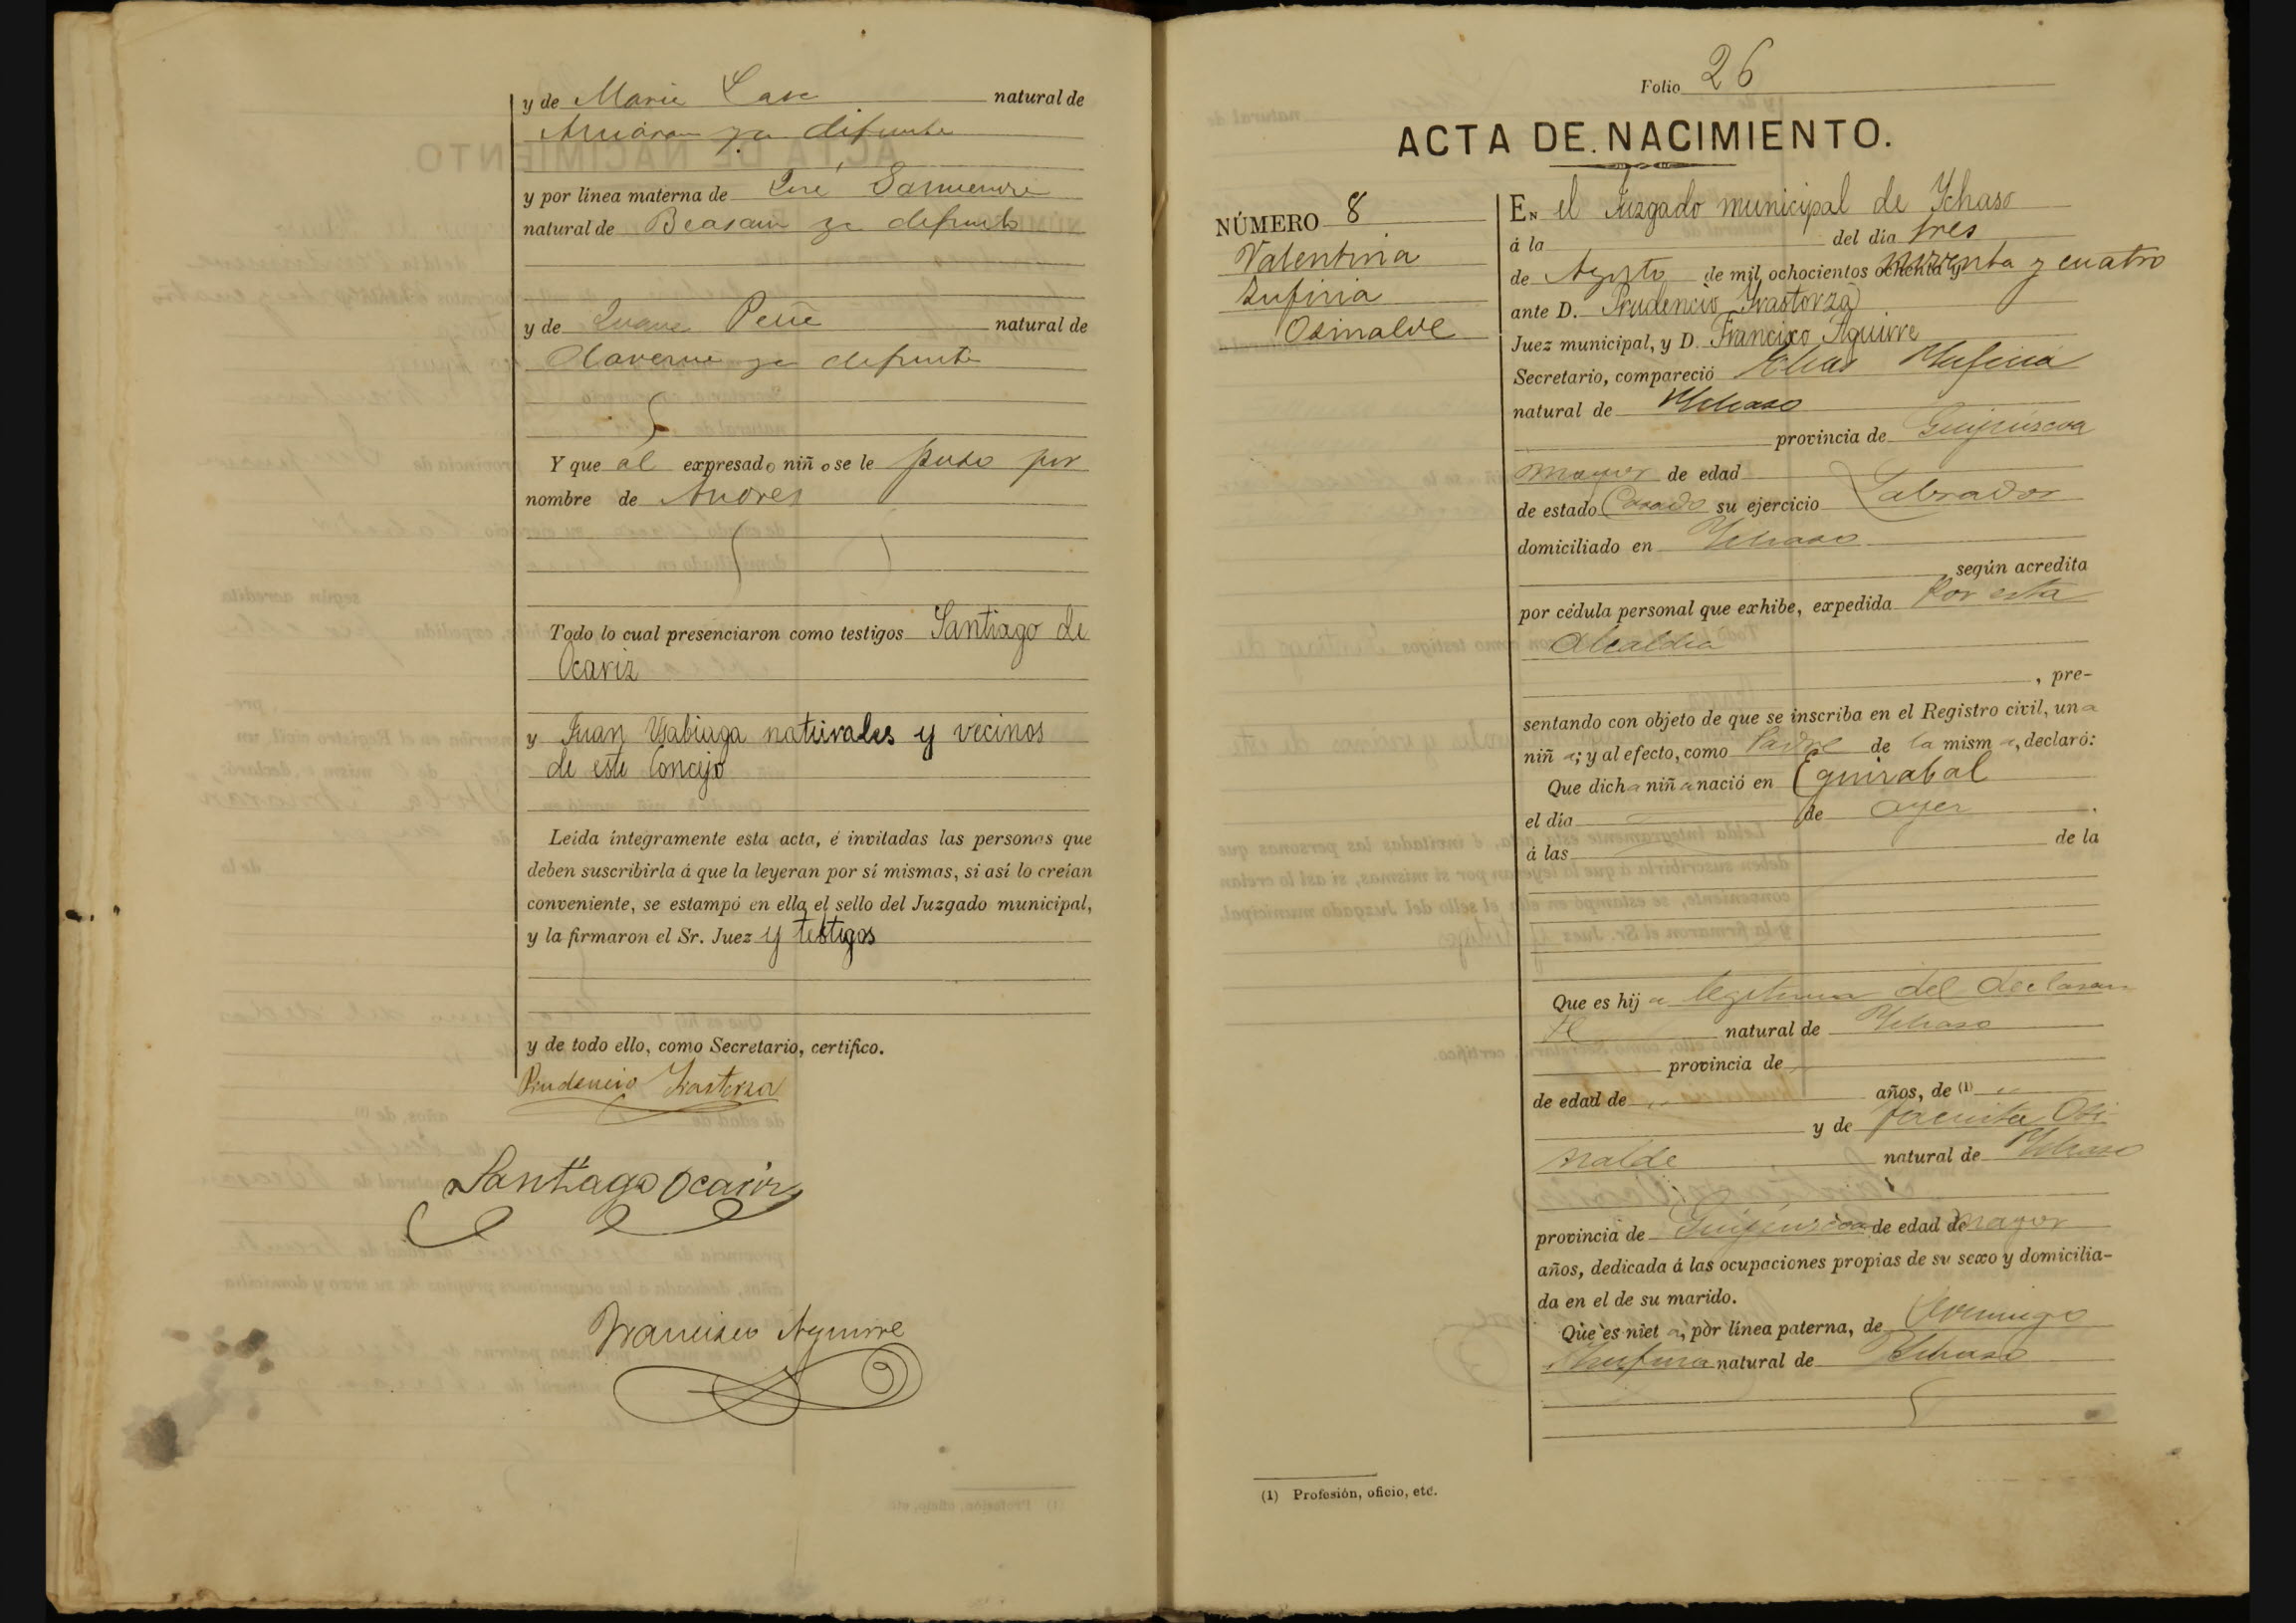 y de Maria Lasa natural de
ya difunta
y por línea materna de José
natural de Beasain ya difunto
y de natural de
ya difunta
Y que al expresado niño se le puso por
nombre de Andres
Todo lo cual presenciaron como testigos Santiago de
Ocariz
y Juan naturales y vecinos
de este Concejo
Leída íntegramente esta acta, é invitadas las personas que
deben suscribirla á que la leyeran por sí mismas, si así lo creían
conveniente, se estampó en ella el sello del Juzgado municipal,
y la firmaron el Sr. Juez y testigos
y de todo ello, como Secretario, certifico.
Prudencio Yrastorza
Santiago Ocariz
Francisco Aguirre
Folio 26
ACTA DE NACIMIENTO.
NÚMERO 8
Valentina
Osinalde
En el Juzgado municipal de Ychaso
á la del día tres
de Agosto de mil ochocientos ochenta y noventa y cuatro
ante D. Prudencio Yrastorza
Juez municipal, y D. Francixo Aguirre
Secretario, compareció Elias
natural de Ychaso
provincia de Guipúzcoa
mayor de edad
de estado Casado su ejercicio Labrador
domiciliado en Ychaso
según acredita
por cédula personal que exhibe, expedida por esta
Alcaldia
, pre-
sentando con objeto de que se inscriba en el Registro civil, una
niña; y al efecto, como Padre de la misma, declaró:
Que dicha niña nació en Eguirabal
el día de ayer .
á las de la
Que es hija legitima del declaran
te natural de Ychaso
provincia de
de edad de " años, de (1) "
y de Juanita Osi
nalde natural de Ychaso
provincia de Guipúzcoa de edad de mayor
años, dedicada á las ocupaciones propias de su sexo y domicilia-
da en el de su marido.
Que es nieta, por línea paterna, de Domingo
natural de Ychaso
(1) Profesión, oficio, etc.